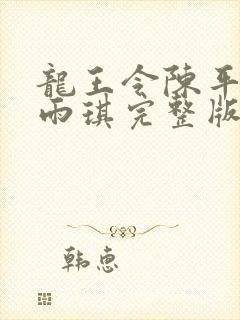 龍王令陳平
雨琪完整版
韩惠